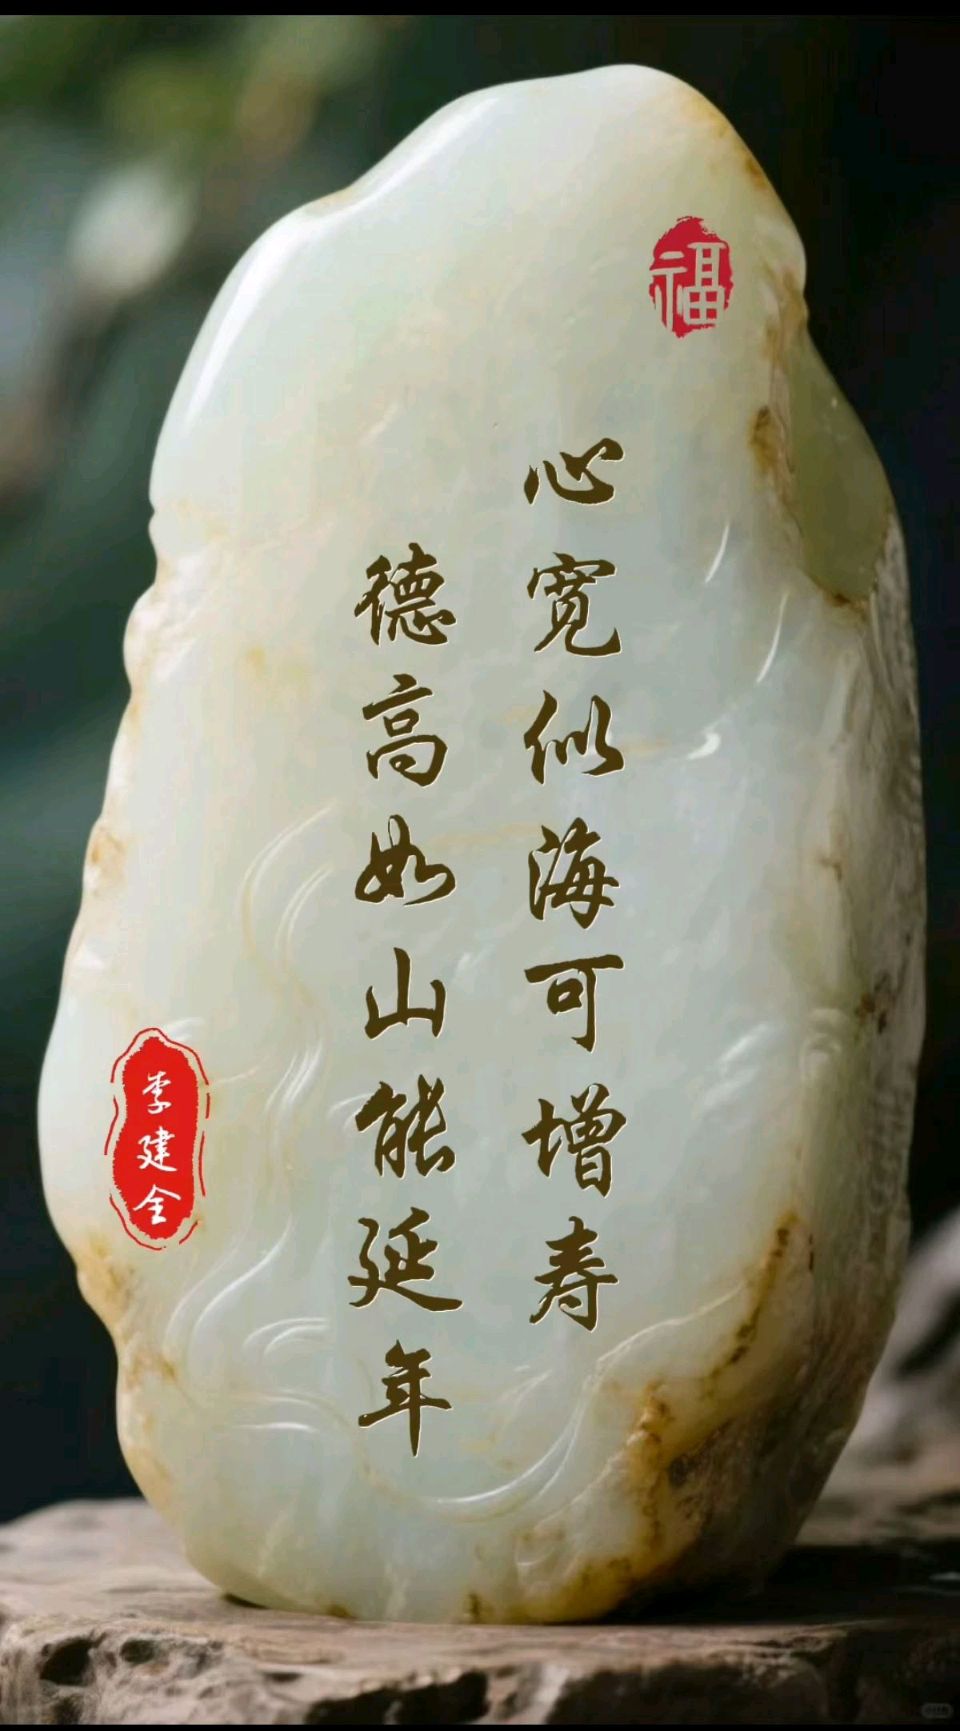 福
心宽似海可增寿
德高如山能延年
李建全